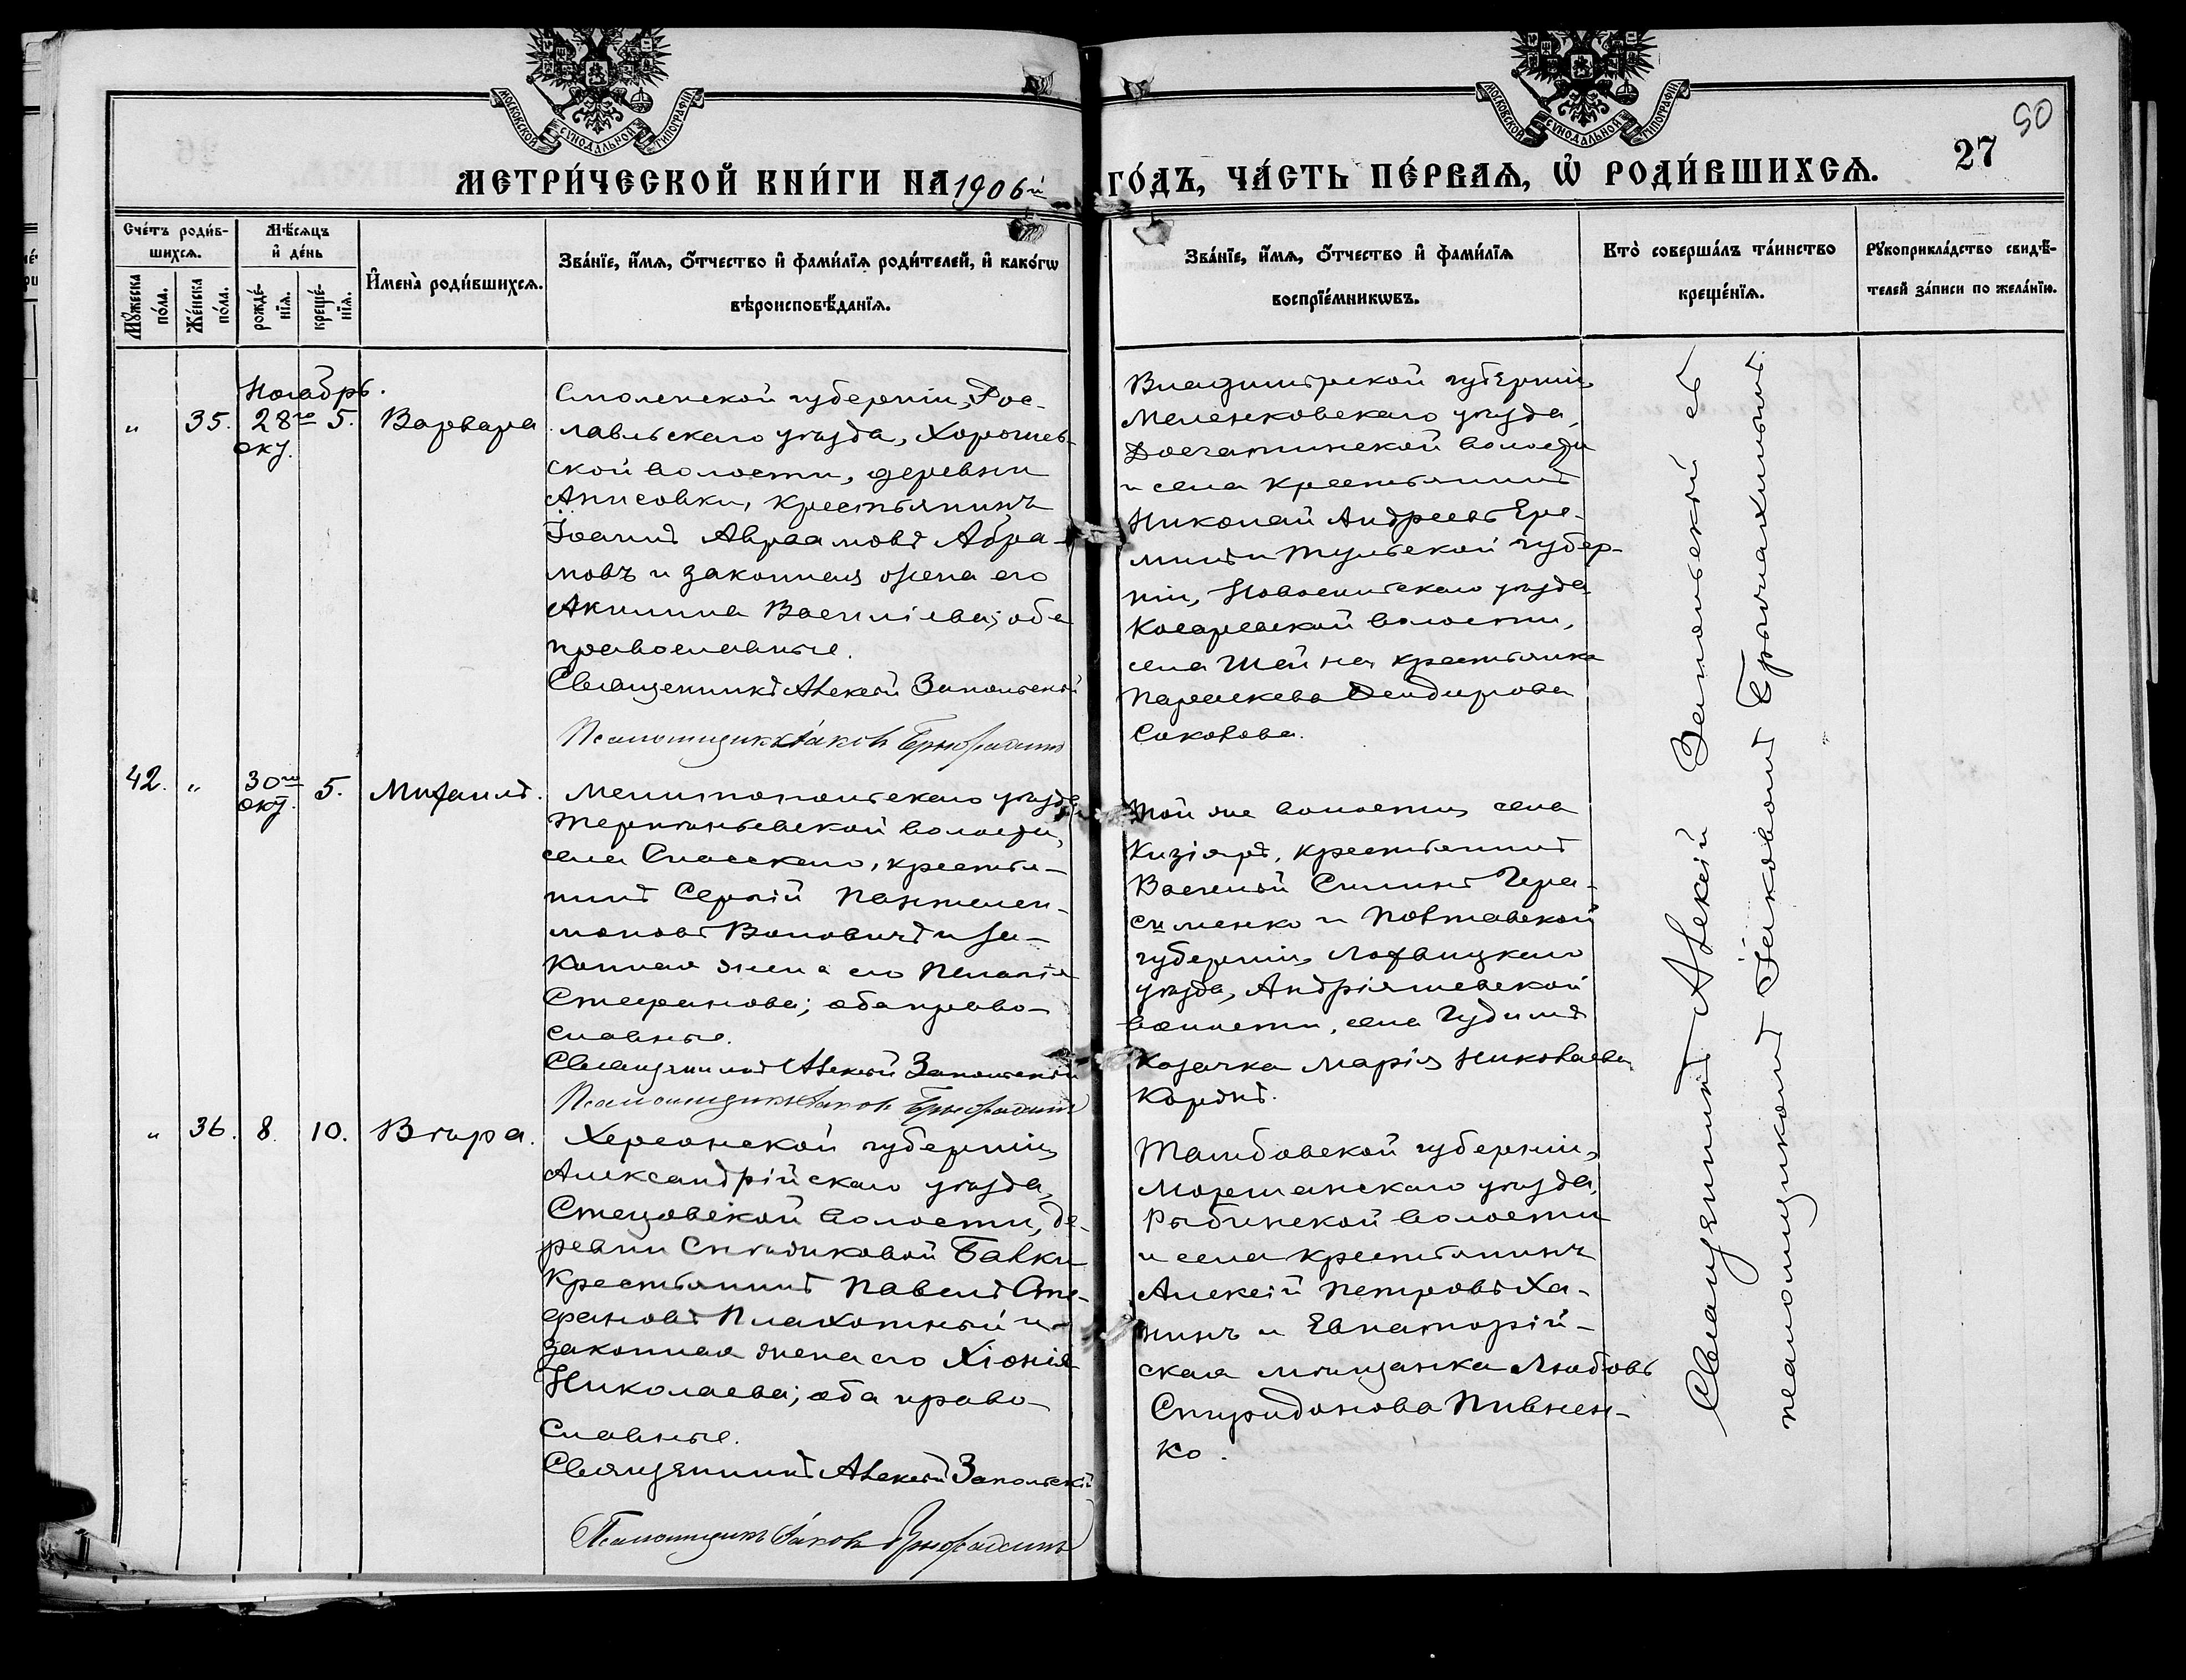 МОСКОВСКОЙ СУНОДАЛЬНОЙ ТИПОГРАФІИ
МОСКОВСКОЙ СУНОДАЛЬНОЙ ТИПОГРАФІИ
50
27
МЕТРИ́ЧЕСКОЙ КНИ́ГИ НА 1906й ГО́ДЪ, ЧА́СТЬ ПЕ́РВАЯ, Ѡ҆ РОДИ́ВШИХСЯ.
Сче́тъ роди́в-
шихся.
Мꙋ́жеска по́ла.
Же́нска по́ла.
Мѣ́сяцъ
и҆ де́нь
рожде́-
нїя.
креще́-
нїя.
И҆мена̀ роди́вшихся.
Зва́нїе, и҆́мя, ѻ҆́тчество и҆ фами́лїя роди́телей, и҆ како́гѡ
вѣроисповѣ́данїя.
Зва́нїе, и҆́мя, ѻ҆́тчество и҆ фами́лїя
воспрїе́мникѡвъ.
Кто̀ соверша́лъ та́инство
креще́нїя.
Рꙋкоприкла́дство свидѣ́-
телей за́писи по жела́нїю.
Ноябрь.
" 35. 28го окт. 5. Варвара
Смоленской губерніи, Рос-
лавльскаго уѣзда, Хорошев-
ской волости, деревни
Анисовки, крестьянинъ
Іоаннъ Авраамовъ Абра-
мовъ и законная жена его
Акилина Василіева; оба
православные.
Священникъ Алексій Запольскій
Псаломщикъ Іаковъ
Владимірской губерніи
Меленковскаго уѣзда,
Досчатинской волости
и села крестьянинъ
Николай Андреевъ Ере-
минъ и Тульской губер-
ніи, Новосильскаго уѣзда
Косаревской волости,
села Шейна крестьянка
Параскева
Соколова.
42. " 30го окт. 5. Михаилъ.
Мелитопольскаго уѣзда
Терпѣньевской волости,
села Спасскаго, крестья-
нинъ Сергій Пантелеи-
моновъ Воловичъ и за-
конная жена его Пелагія
Стефанова; оба право-
славные.
Священникъ Алексій Запольскій
Псаломщикъ Іаковъ
Той же волости, села
Кизіяръ, крестьянинъ
Василій Силинъ Гера-
сименко и Полтавской
губерніи, Лохвицкаго
уѣзда, Андріяшевской
волости, села Гудимъ
козачка Марія Николаева
Коржъ.
" 36. 8. 10. Вѣра.
Херсонской губерніи,
Александрійскаго уѣзда,
Стецовской волости, де-
ревни Балки
крестьянинъ Павелъ Сте-
фановъ Плахотный и
законная жена его Хіонія
Николаева; оба право-
славные.
Священникъ Алексій Запольскій
Псаломщикъ Іаковъ
Тамбовской губерніи,
Моршанскаго уѣзда,
Рыбинской волости
и села крестьянинъ
Алексій Петровъ Ха-
нинъ и Евпаторій-
ская мѣщанка Любовь
Спиридонова Пивнен-
ко.
Священникъ Алексій Запольскій съ
псаломщикомъ Іаковомъ